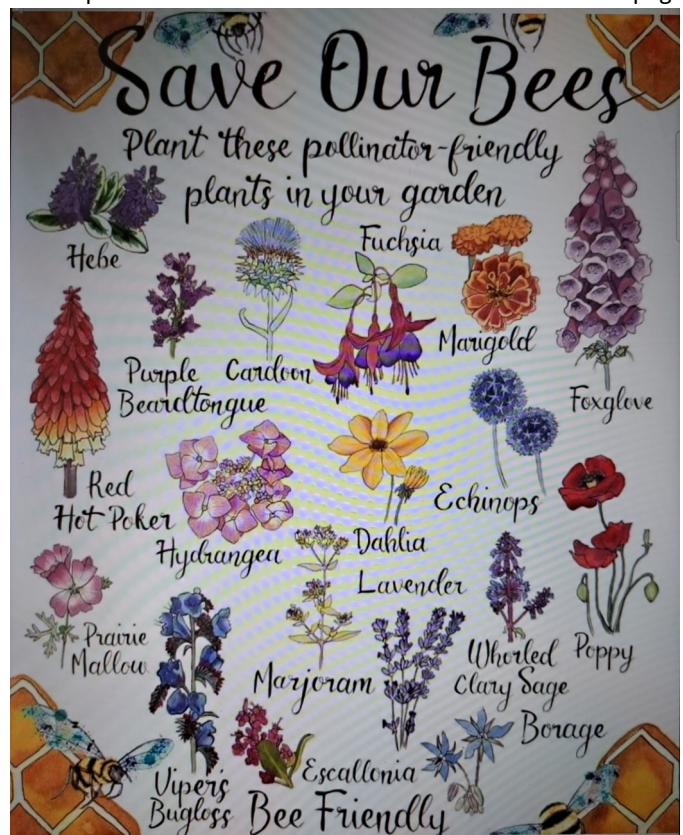 Save Our Bees
Plant these pollinator-friendly
plants in your garden
Hebe
Fuchsia
Purple
Beardtongue
Cardoon
Marigold
Foxglove
Red
Hot Poker
Hydrangea
Dahlia
Echinops
Lavender
Prairie
Mallow
Marjoram
Whorled
Clary Sage
Poppy
Viper's
Bugloss
Escallonia
Borage
Bee Friendly